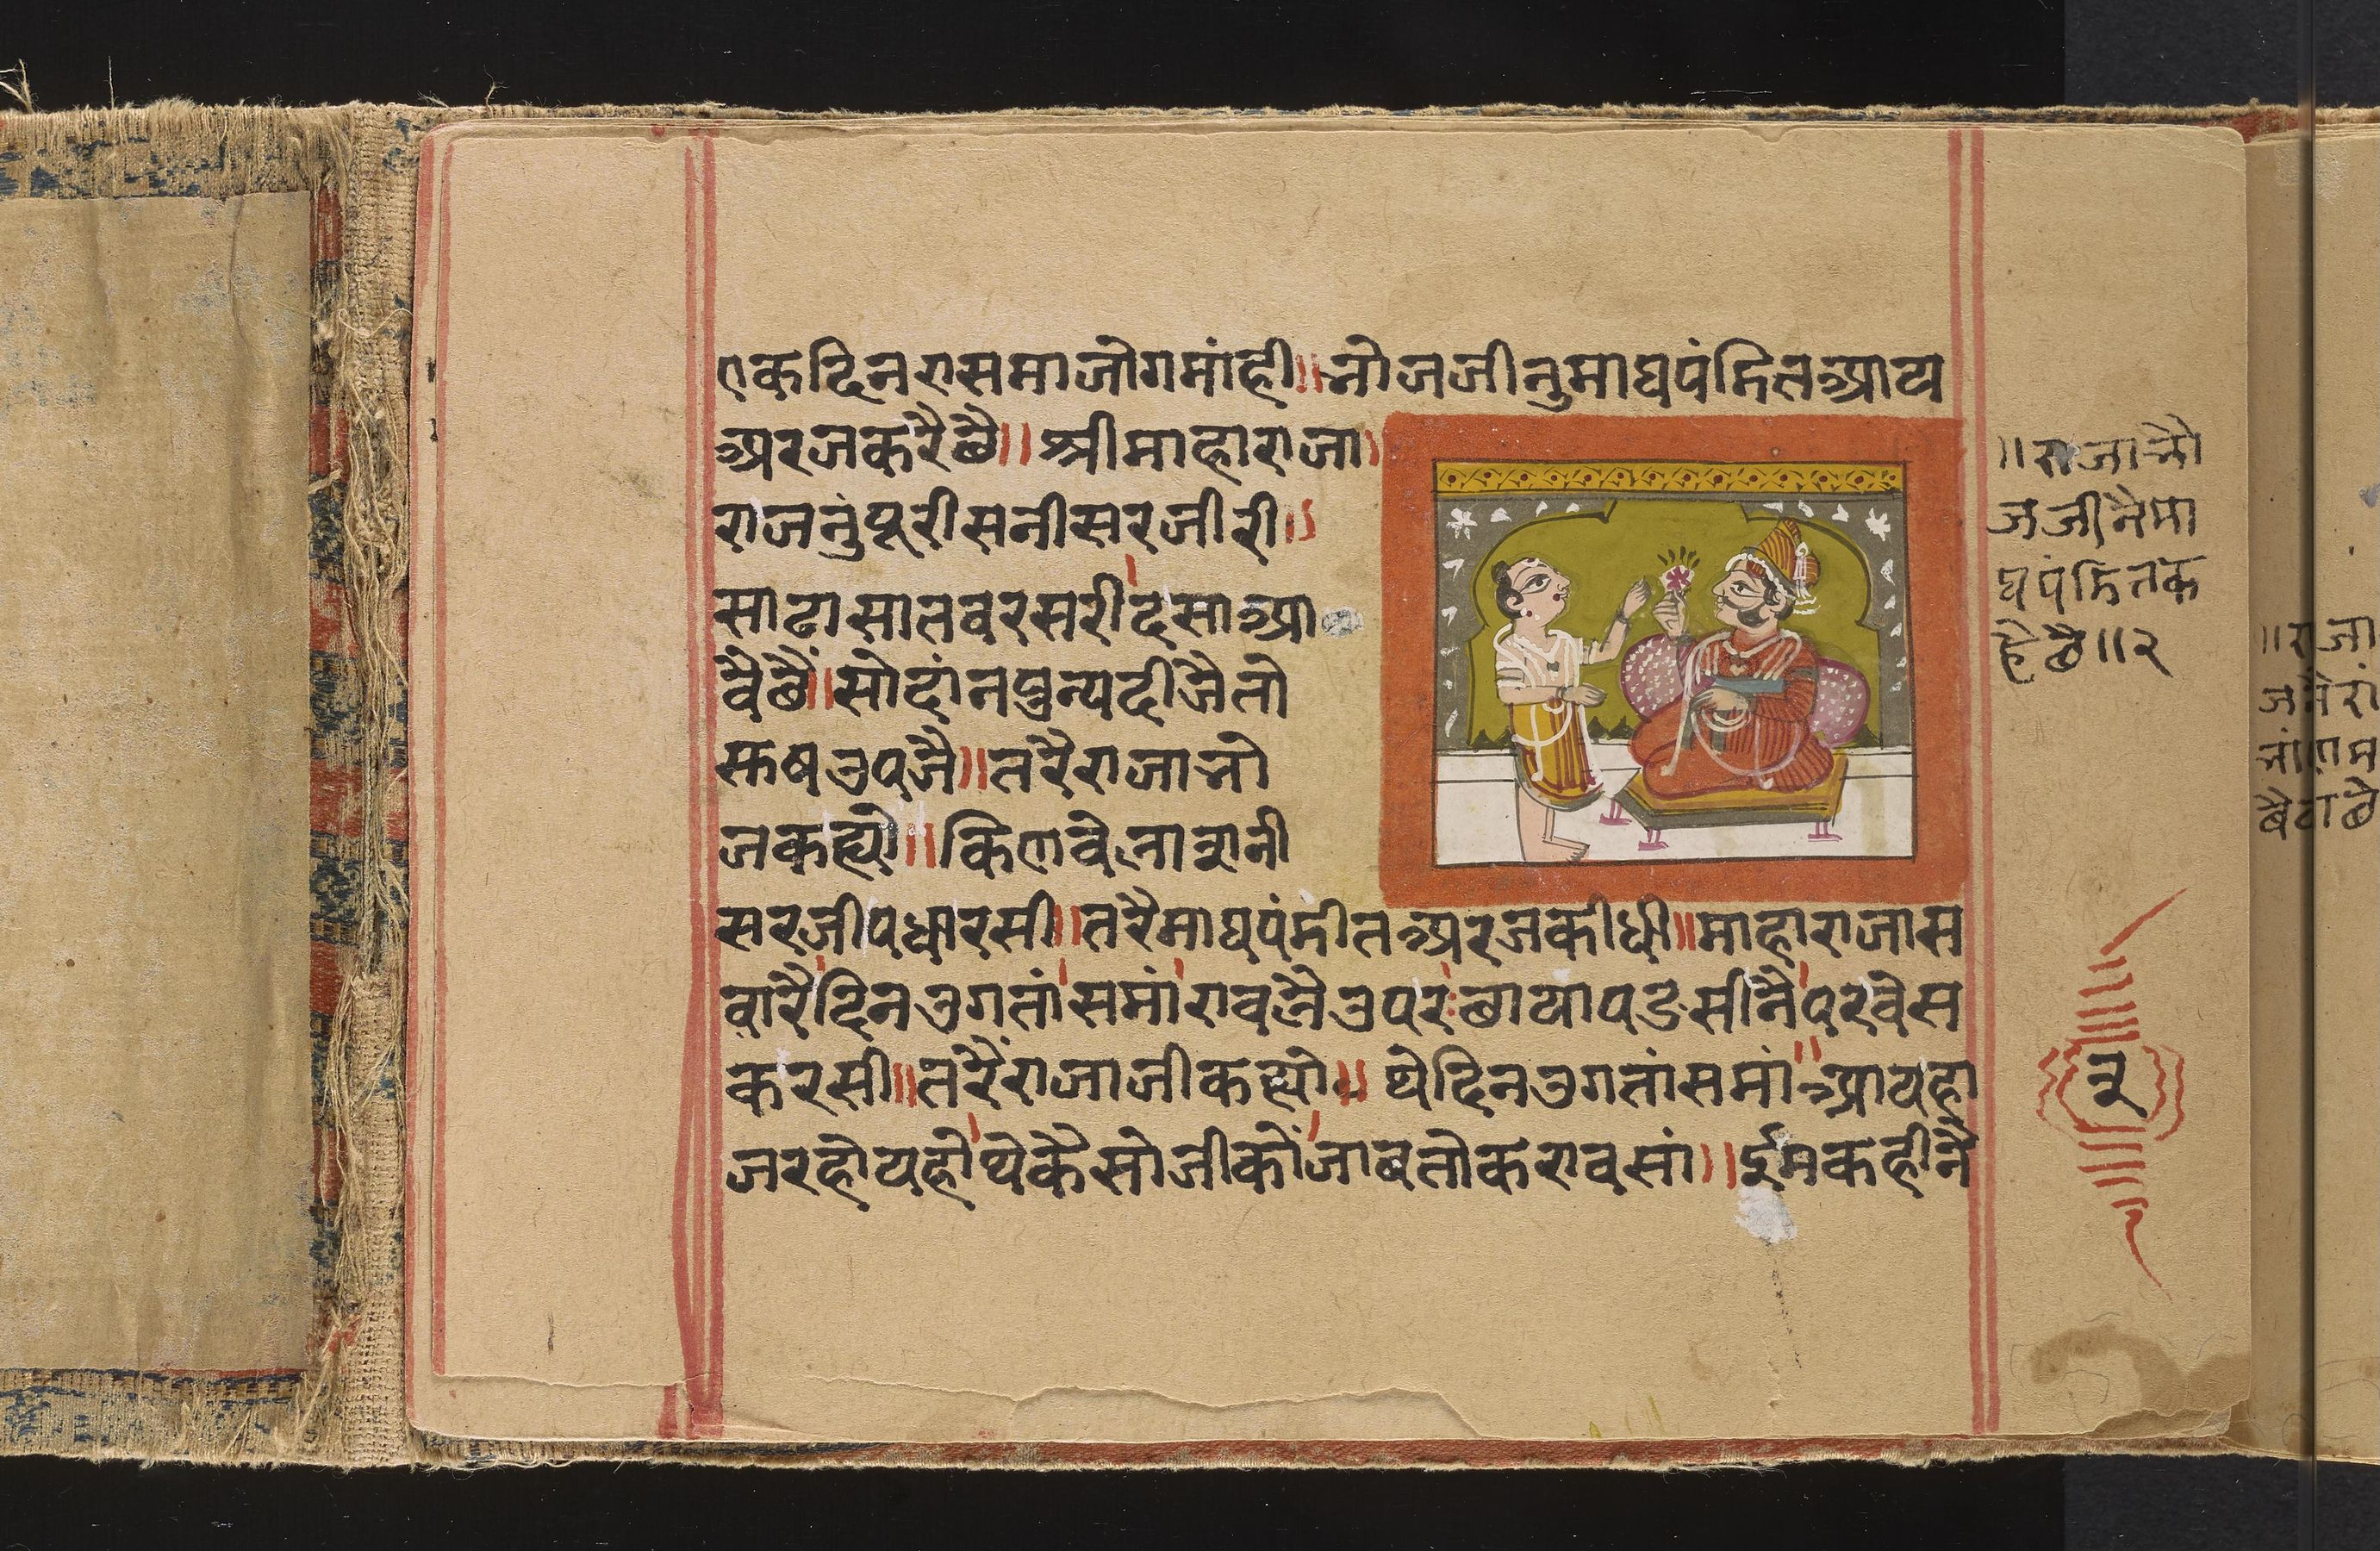 एकदिनरासमाजोगमांही॥भोजजीनुमाघपंडितआय
अरजकरैछै॥श्रीमाहाराजा
राजनुंपूरीसनीसरजीरी॥
साढासातवरसरीदसाआ
वैछैं॥सोदांनपुन्यदीजैतो
रूषउपजै॥तरैराजाभो
जकह्यो॥किणवेलाथानी
सरजीपधारसी॥तरैमाघपंडीतअरजकीधी॥माहाराजास
वारैदिनउगतांसमांरावलैउपरछायापडसीनैपरवेस
करसी॥तरैंराजाजीकह्यो॥थेदिनउगतांसमांआयहा
जरहोयहोथेकैसोजीकोंजाबतोकरावसां॥ईमकहीनै
॥राजाभो
जजीनैमा
घपंडितक
हेछै॥२
२
॥राजा
बैठाछै